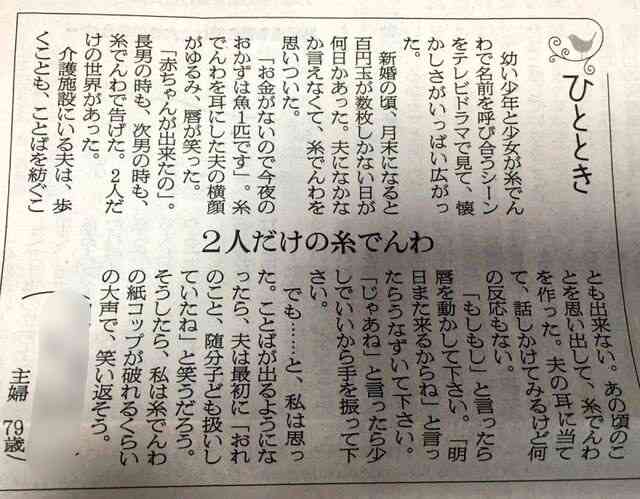 ひととき
２人だけの糸でんわ
　幼い少年と少女が糸でん
わで名前を呼び合うシーン
をテレビドラマで見て、懐
かしさがいっぱい広がっ
た。
　新婚の頃、月末になると
百円玉が数枚しかない日が
何日かあった。夫になかな
か言えなくて、糸でんわを
思いついた。
　「お金がないので今夜の
おかずは魚１匹です」。糸
でんわを耳にした夫の横顔
がゆるみ、唇が笑った。
　「赤ちゃんが出来たの」。
長男の時も、次男の時も、
糸でんわで告げた。２人だ
けの世界があった。
　介護施設にいる夫は、歩
くことも、ことばを紡ぐこ
とも出来ない。あの頃のこ
とを思い出して、糸でんわ
を作った。夫の耳に当て
て、話しかけてみるけど何
の反応もない。
　「もしもし」と言ったら
唇を動かして下さい。「明
日また来るからね」と言っ
たらうなずいて下さい。
「じゃあね」と言ったら少
しでいいから手を振って下
さい。
　でも……と、私は思っ
た。ことばが出るようにな
ったら、夫は最初に「おれ
のこと、随分子ども扱いし
ていたね」と笑うだろう。
そうしたら、私は糸でんわ
の紙コップが破れるくらい
の大声で、笑い返そう。
主婦　79歳